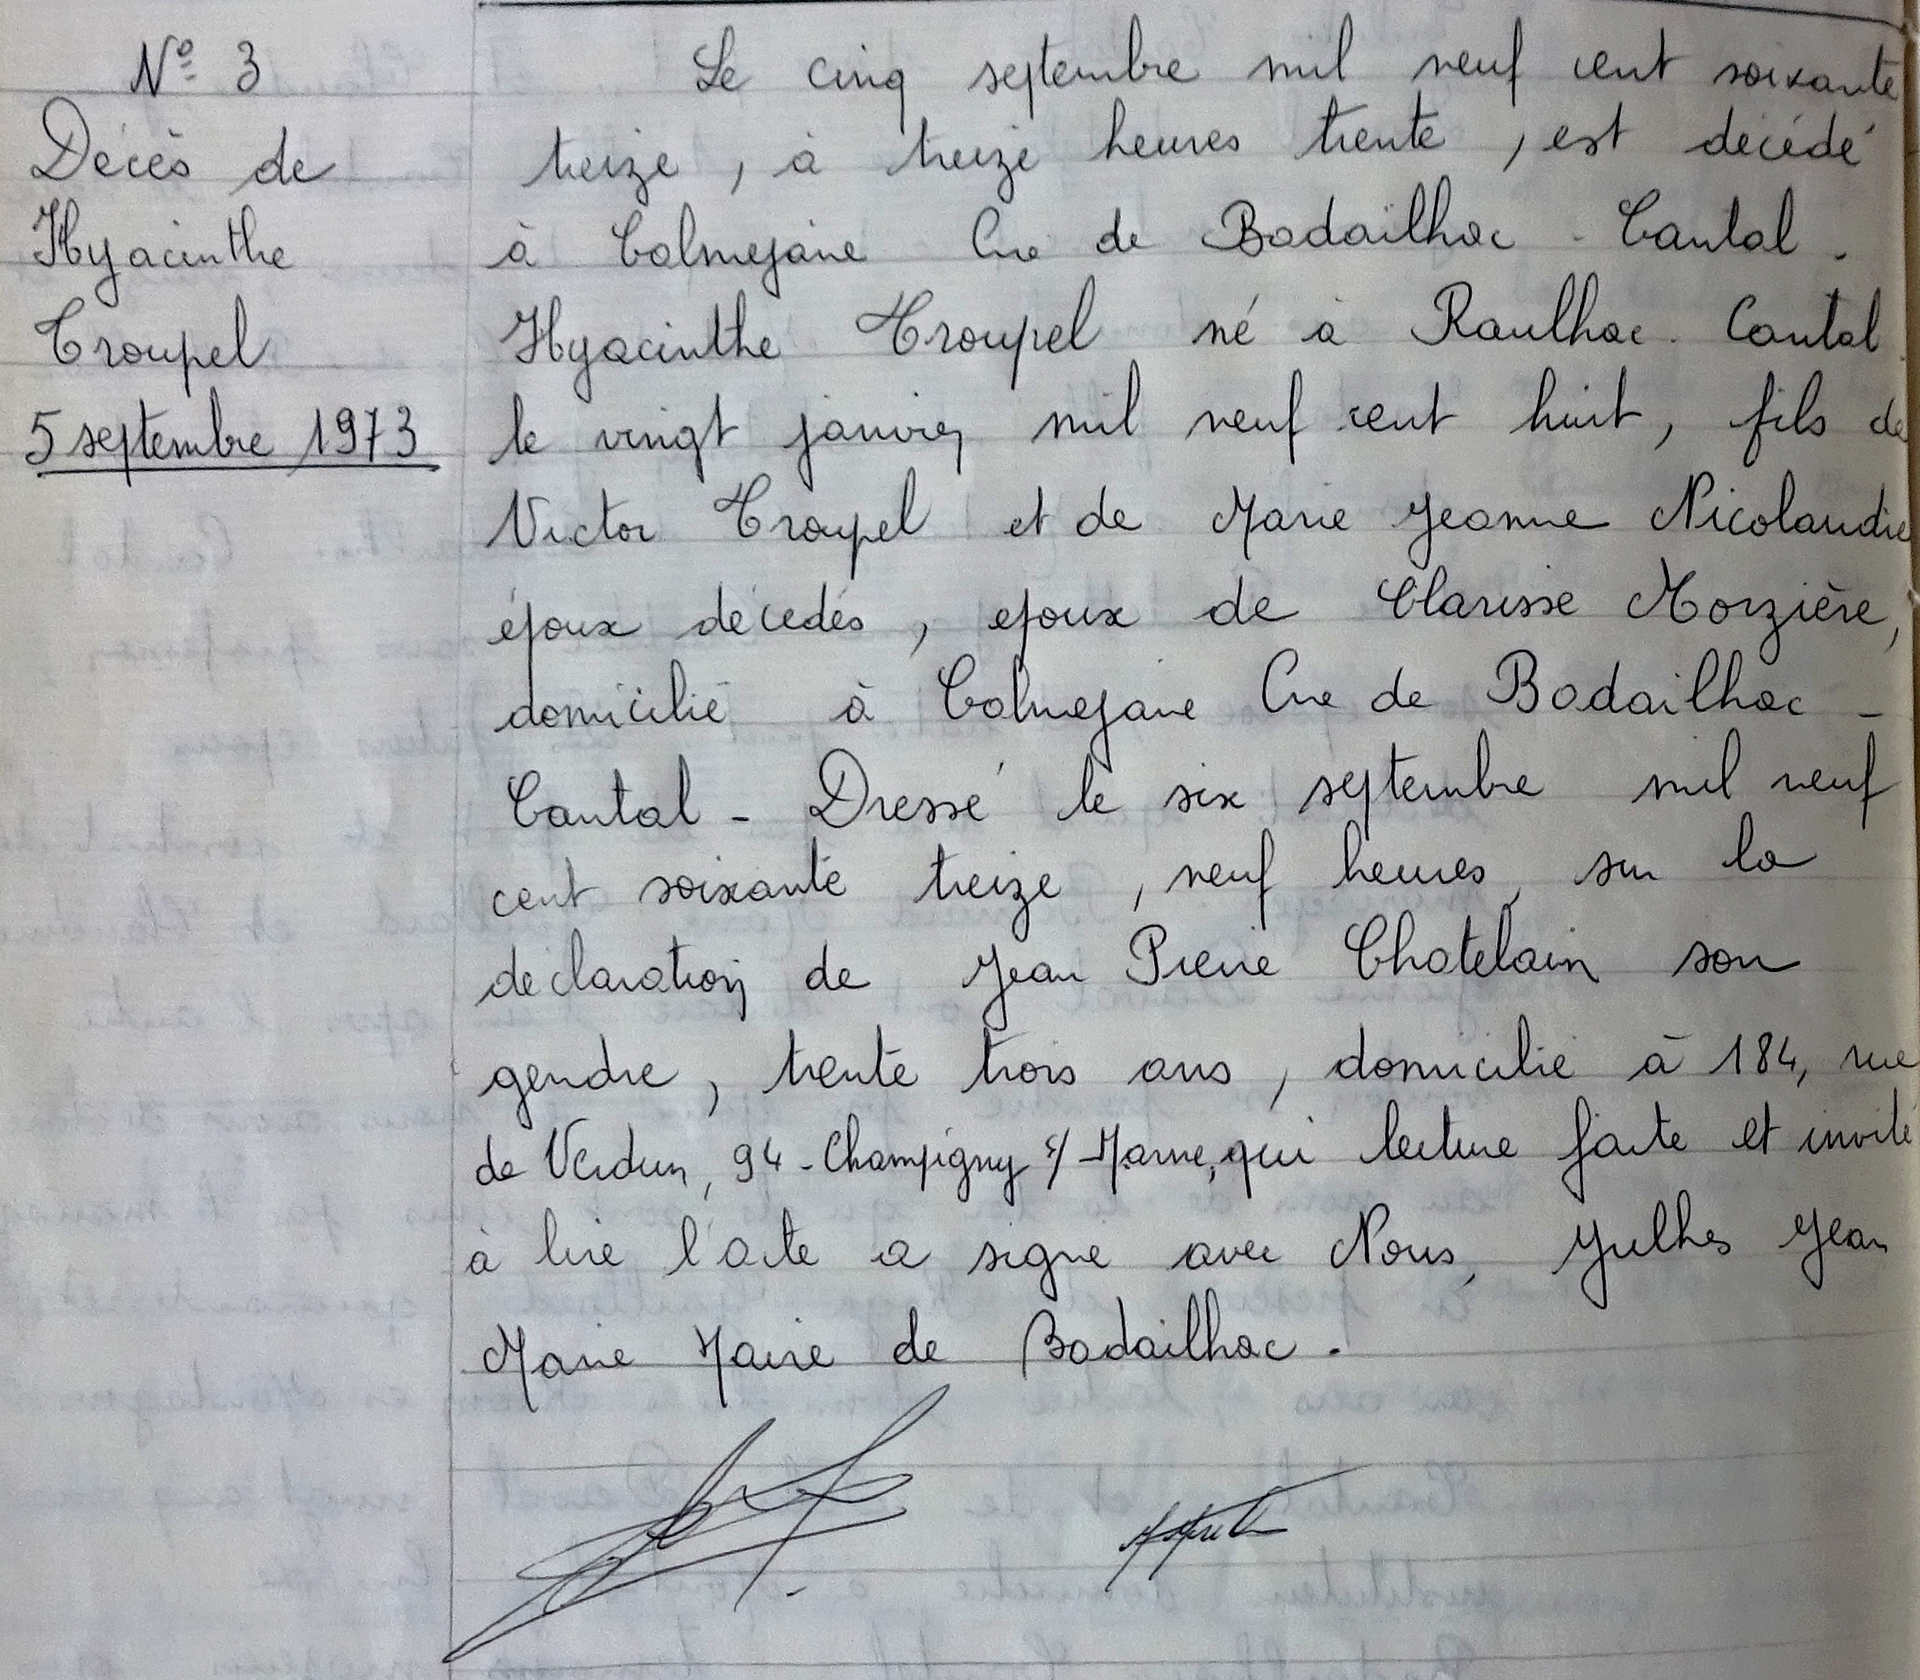 N° 3
Décès de
Hyacinthe
Troupel
5 septembre 1973
Le cinq septembre mil neuf cent soixante
treize, à treize heures trente, est décédé
à Colmejane Cne de Badailhac - Cantal.
Hyacinthe Troupel né à Raulhac. Cantal
le vingt janvier mil neuf cent huit, fils de
Victor Troupel et de Marie Jeanne Nicolaudie
époux décédés, époux de Clarisse Morzière,
domicilié à Colmejane Cne de Badailhac -
Cantal - Dressé le six septembre mil neuf
cent soixante treize, neuf heures, sur la
déclaration de Jean Pierre Chatelain son
gendre, trente trois ans, domicilié à 184, rue
de Verdun, 94 - Champigny s/ Marne, qui lecture faite et invité
à lire l'acte a signé avec Nous, Julhes Jean
Marie Maire de Badailhac.